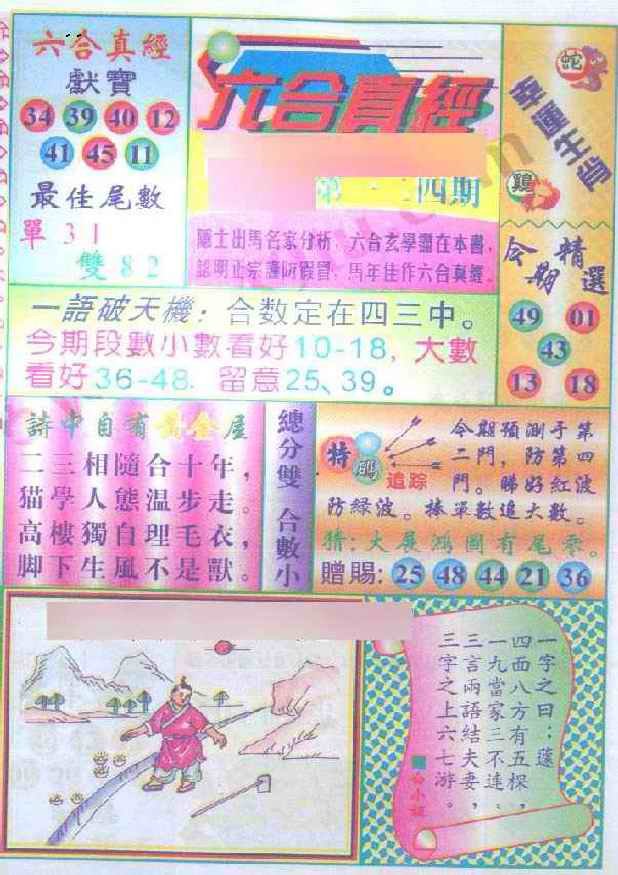 六合真經
獻寶
34 39 40 12
41 45 11
最佳尾數
單31
雙82
六合真經
四期
隱士出馬名家分析,六合玄學盡在本書,
認明正宗謹防假冒,馬年佳作六合真經。
蛇
幸運生肖
鷄
今期精選
49 01
43
13 18
一語破天機:合数定在四三中。
今期段數小數看好10-18,大數
看好36-48.留意25、39。
詩中自有黃金屋
二三相隨合十年,
猫學人態温步走。
高樓獨自理毛衣,
脚下生風不是獸。
總分雙 合數小
特碼
追踪
令期預測手第
二門,防第四
門。睇好紅波
防綠波。捧單數追大數。
猜:大展鴻圖有尾零。
贈賜:25 48 44 21 36
一字之曰:蓬
四面八方有五棵,
一九當家三不達,
三言兩語結夫妻,
三字之上六七游。